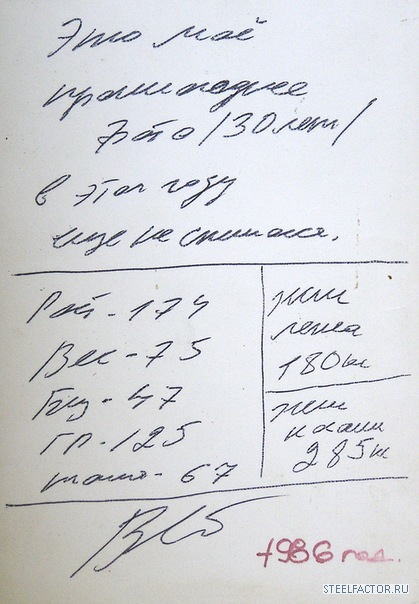 Это моё
прошлогоднее
Фото /30 лет/
в этом году
еще не снимался.
Рост - 174
Вес - 75
Биц - 47
гр. - 125
талия - 67
жим
лежа
180 кг
жим
ногами
285 кг
1986 год.
STEELFACTOR.RU